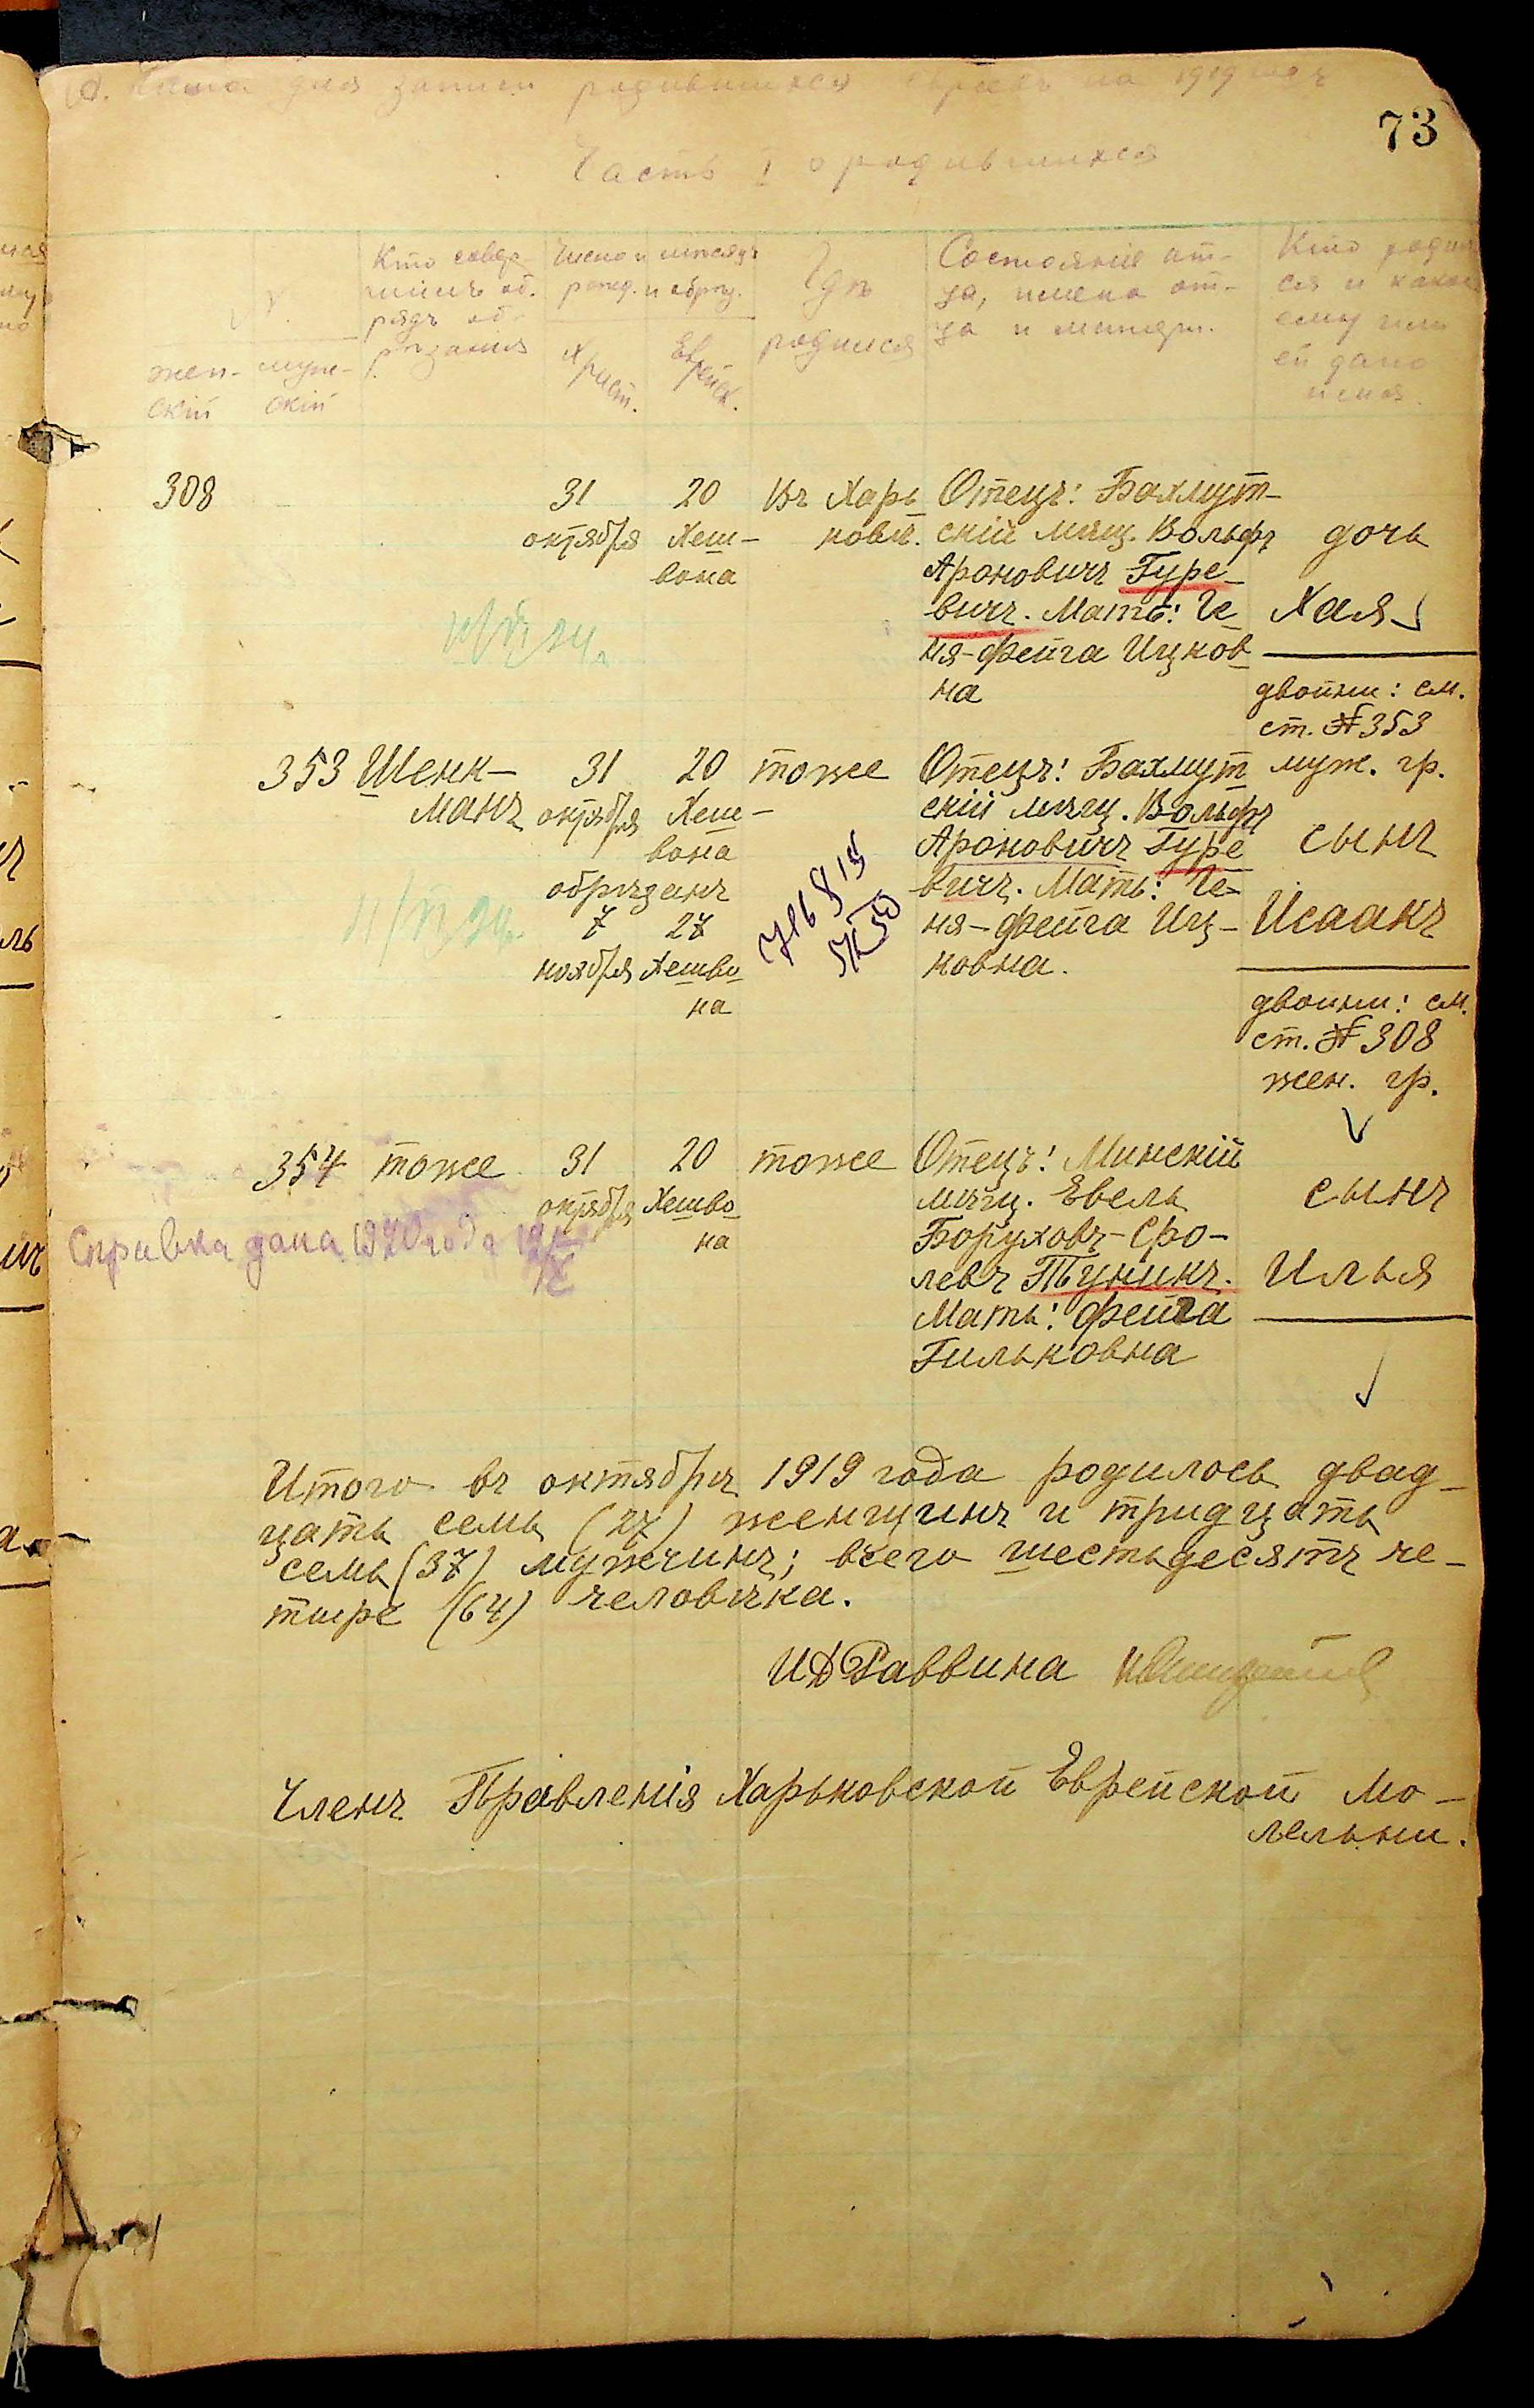 для записи родившихся евреевъ на 1919 годъ
73
Часть I о родившихся
№
жен-
скій
муж-
скій
Кто совер
шилъ об.
рядъ об-
рѣзанія
Число и мѣсяцъ
рожд. и обрѣз.
Христ.
Еврейск.
Гдѣ
родился
Состояніе от-
ца, имена от-
ца и матери.
Кто родил
ся и какое
ему или
ей дано
имя.
308
31
октября
20
Хеш-
вона
Въ Харь
ковѣ.
Отецъ: Бахмут-
скій мѣщ. Вольфъ
Ароновичъ Гуре-
вичъ. Мать: Ге
ня-Фейга Ицков
на
дочь
Хая
двойни: см.
ст. № 353
муж. гр.
353
Шенк-
манъ
31
октября
20
Хеш-
вона
обрѣзанъ
7
ноября
27
Хешво
на
тоже
Отецъ: Бахмут
скій мѣщ. Вольфъ
Ароновичъ Гуре
вичъ. Мать: Ге-
ня-Фейга Иц-
ковна.
сынъ
Исаакъ
двойни: см.
ст. № 308
жен. гр.
354
тоже
31
октября
20
Хешво
на
тоже
Отецъ: Минскій
мѣщ. Евель
Боруховъ-Сро-
левъ Туникъ.
Мать: Фейга
Гильковна
сынъ
Илья
Справка дана 1920 года
Итого въ октябрѣ 1919 года родилось двад-
цать семь (27) женщинъ и тридцать
семь (37) мужчинъ; всего шестьдесятъ че-
тыре (64) человѣка.
ИД Раввина
Членъ Правленія Харьковской Еврейской Мо-
лельни.